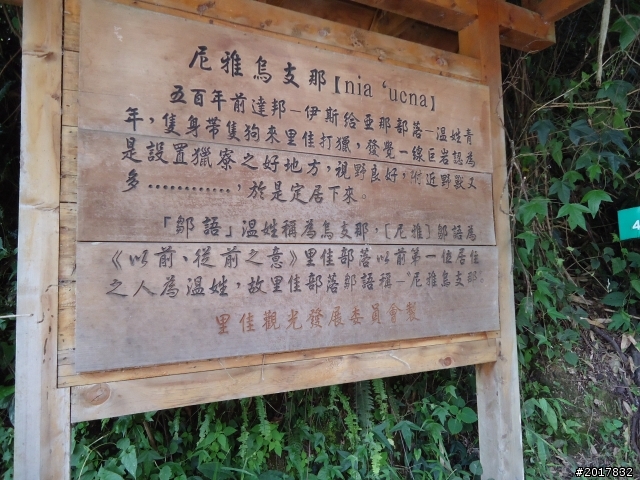 尼雅烏支那【nia 'ucna】
五百年前達邦–伊斯給亞那部落–溫姓青
年，隻身帶隻狗來里佳打獵，發覺一線巨岩認為
是設置獵寮之好地方，視野良好，附近野獸又
多…………，於是定居下來。
「鄒語」溫姓稱為烏支那，〔尼雅〕鄒語為
《以前、從前之意》里佳部落以前第一位居住
之人為溫姓，故里佳部落鄒語稱–“尼雅烏支那”
里佳觀光發展委員會製
4
#2017832